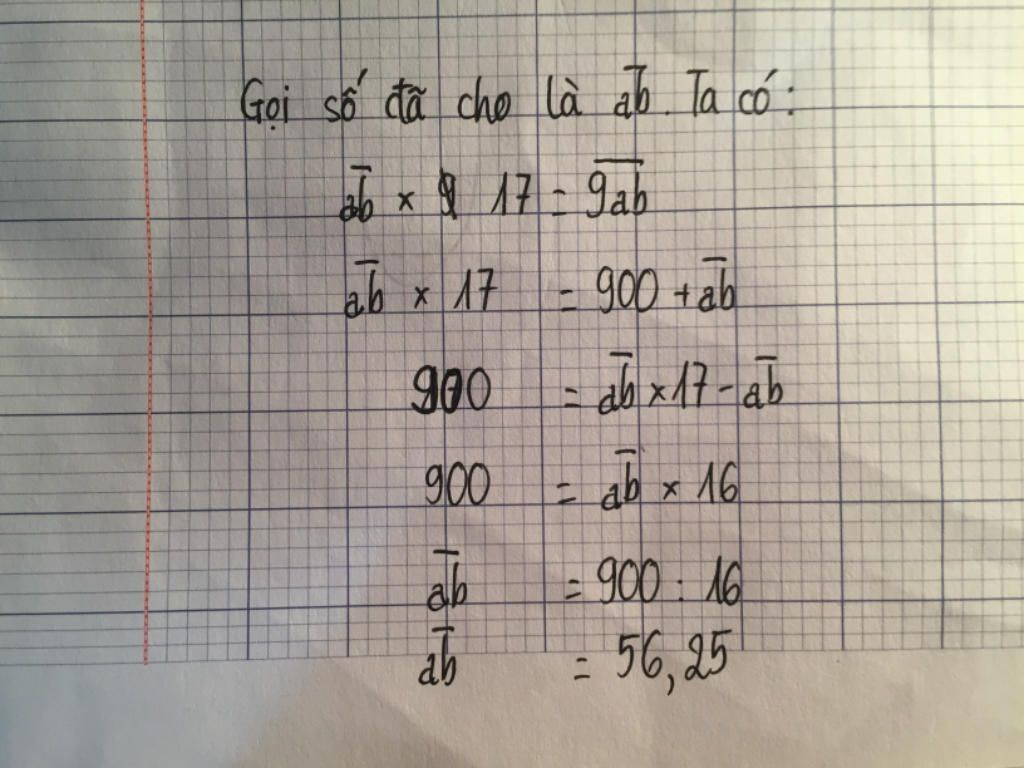 Gọi số đã cho là a̅b̅. Ta có:
a̅b̅ × 17 = 9̅a̅b̅
a̅b̅ × 17 = 900 + a̅b̅
900 = a̅b̅ × 17 - a̅b̅
900 = a̅b̅ × 16
a̅b̅ = 900 : 16
a̅b̅ = 56,25